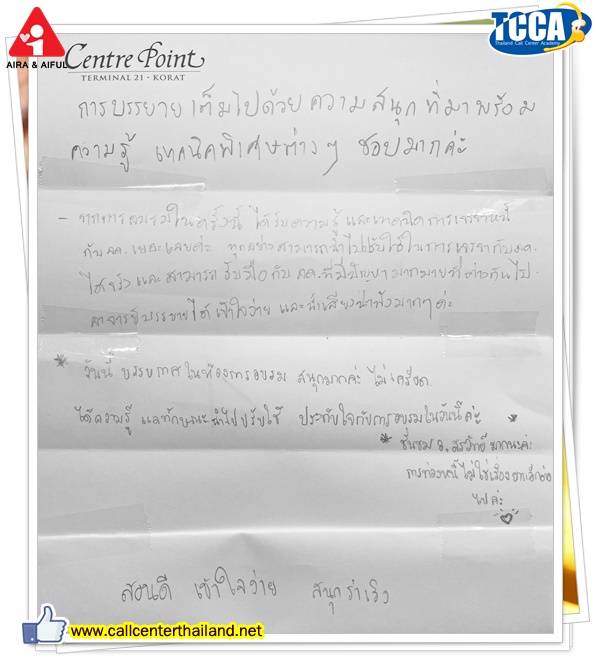 AIRA & AIFUL
Centre Point
TERMINAL 21 · KORAT
TCCA
Thailand Call Center Academy
การบรรยายเต็มไปด้วยความสนุกที่มาพร้อม
ความรู้ เทคนิคพิเศษต่างๆ ชอบมากค่ะ
- จากการอบรมในครั้งนี้ ได้รับความรู้ และเทคนิคการเจรจาหนี้
กับ ลค. เยอะเลยค่ะ ทุกอย่างสามารถนำไปปรับใช้ในการเจรจากับ ลค.
ได้จริง และสามารถรับมือกับ ลค. ที่มีปัญหามากมายที่ต่างกันไป
อาจารย์บรรยายได้เข้าใจง่าย และน้ำเสียงน่าฟังมากๆค่ะ
* วันนี้ บรรยากาศในห้องการอบรม สนุกมากค่ะ ไม่เครียด
ได้ความรู้ และทักษะนำไปปรับใช้ ประทับใจกับการอบรมในวันนี้ค่ะ
* ชื่นชม อ. สรวิทย์ มากนะคะ
การทวงหนี้ไม่ใช่เรื่องยากอีกต่อ
ไปค่ะ
สอนดี เข้าใจง่าย สนุกร่าเริง
www.callcenterthailand.net